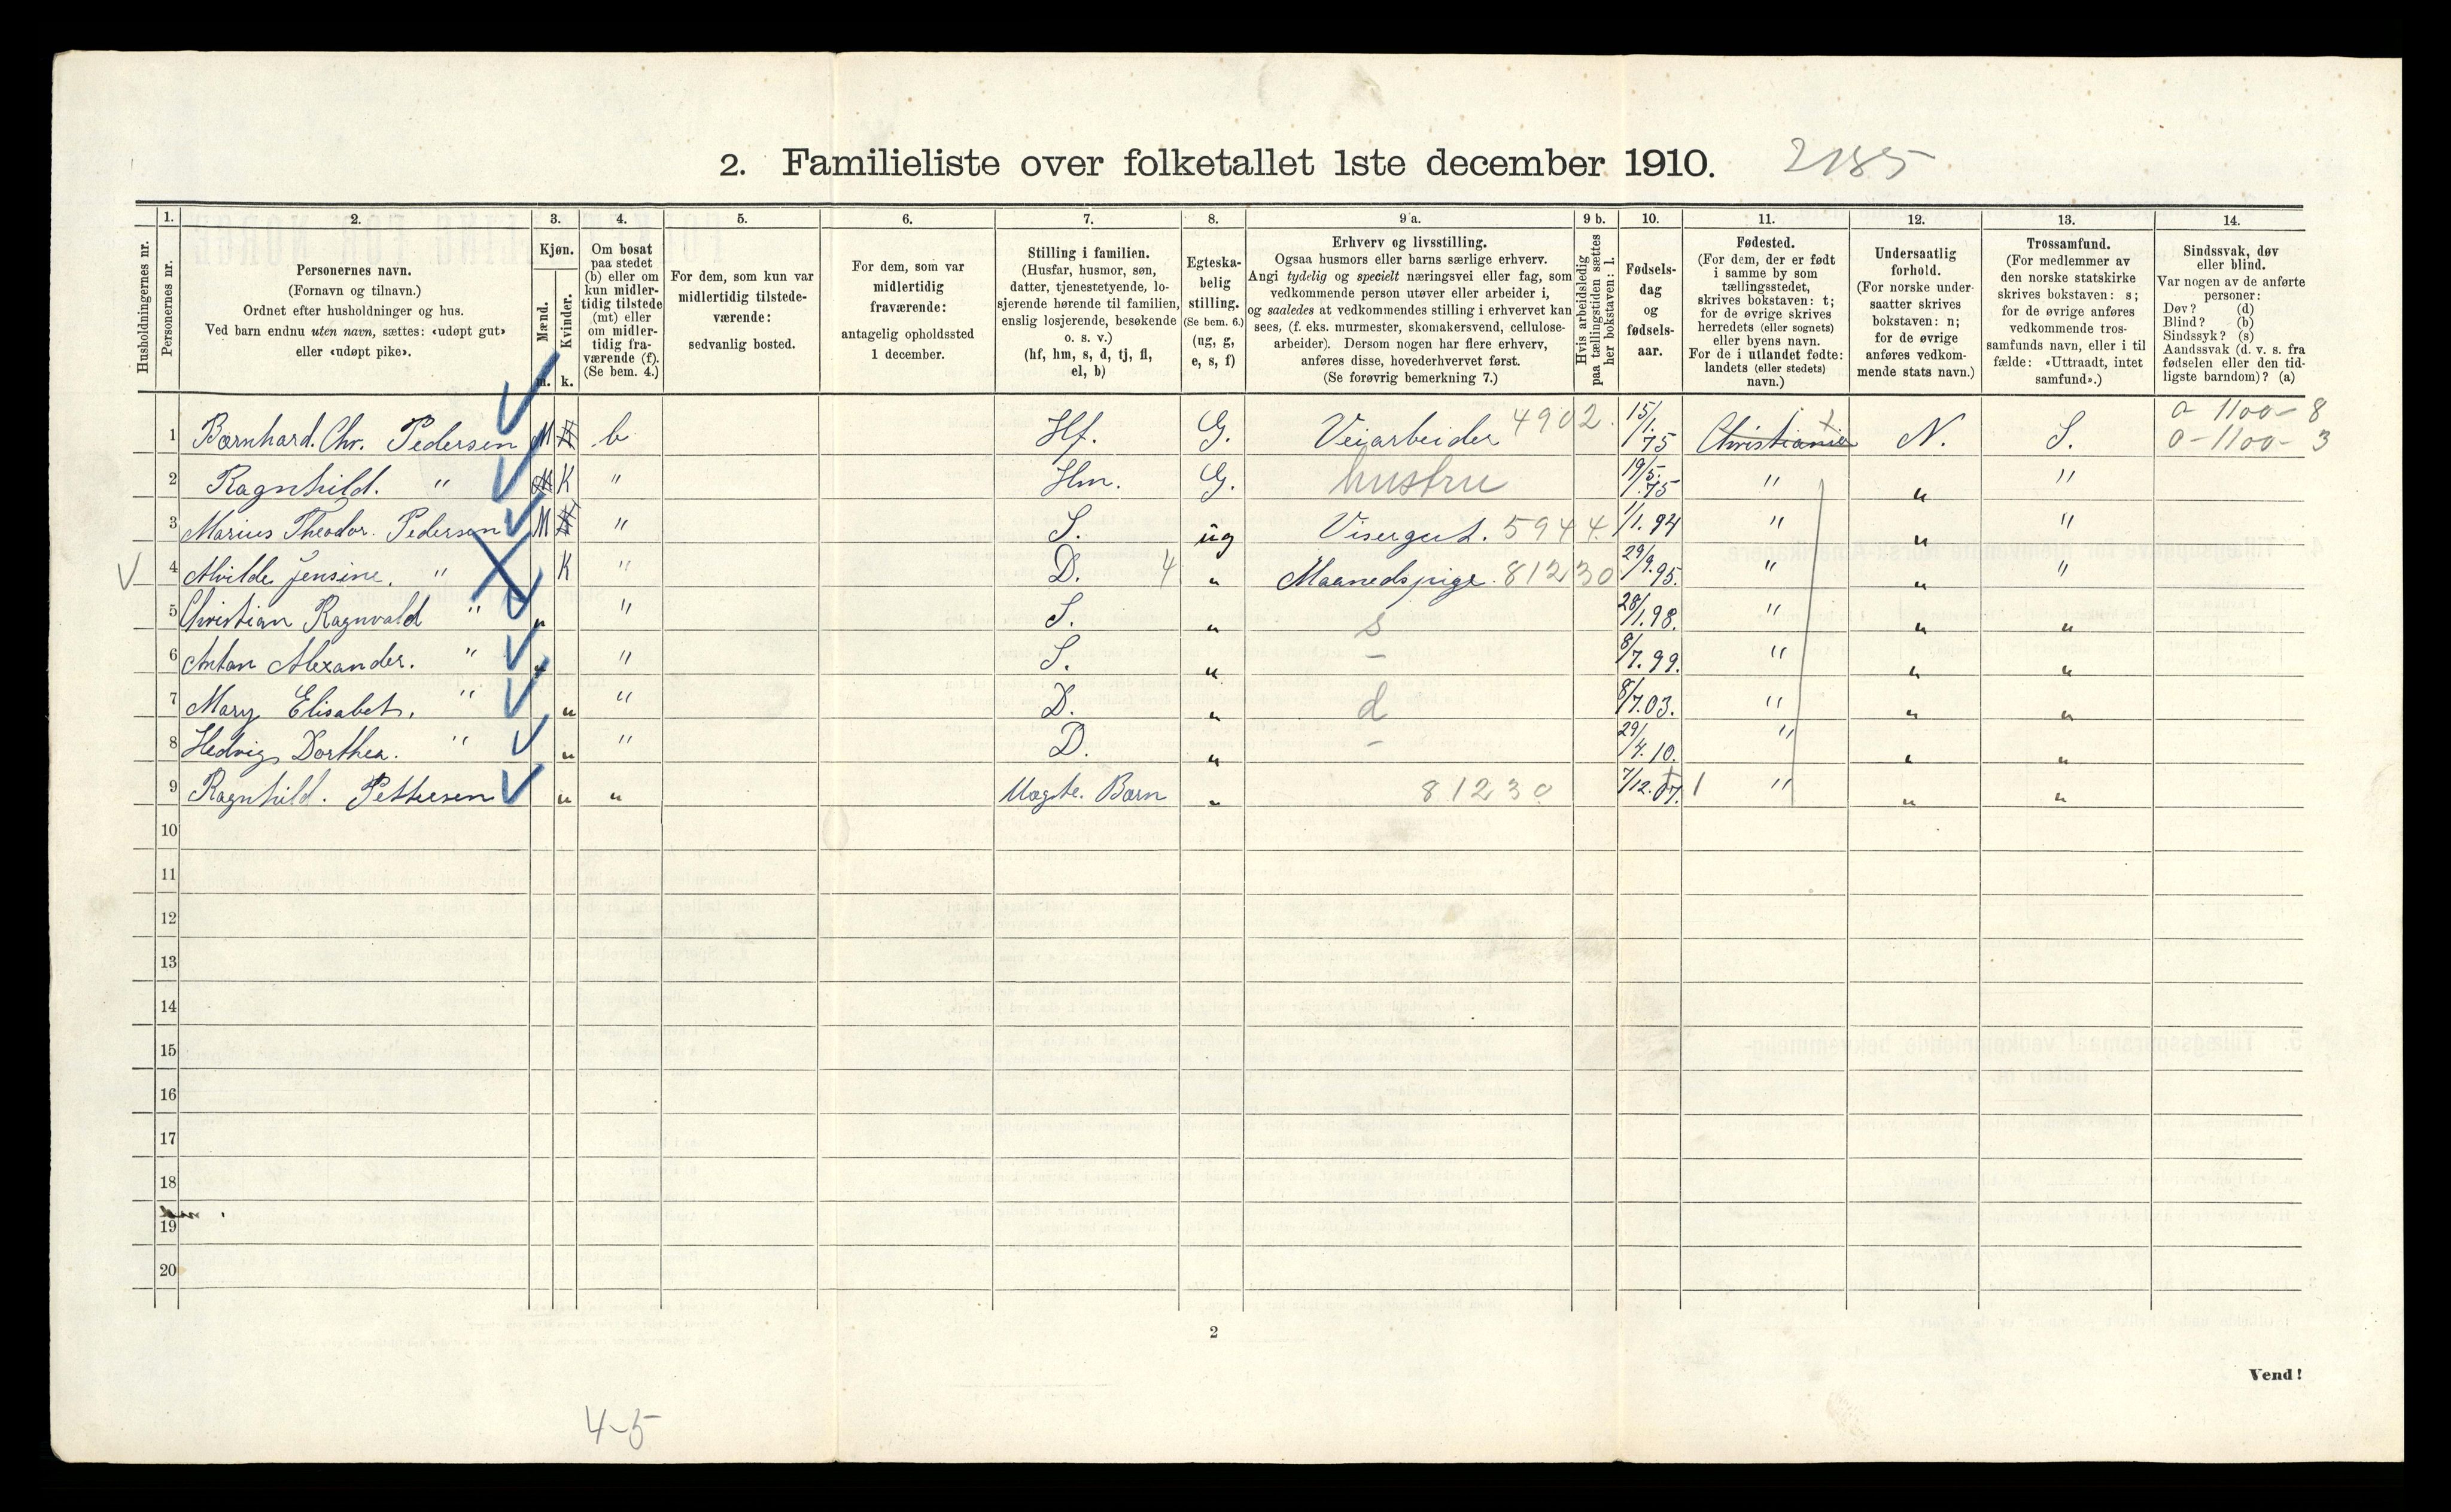 2. Familieliste over folketallet 1ste december 1910. 2185
1. 2. 3. 4. 5. 6. 7. 8. 9 a. 9 b. 10. 11. 12. 13. 14.
Husholdningernes nr.
Personernes nr.
Personernes navn.
(Fornavn og tilnavn.)
Ordnet efter husholdninger og hus.
Ved barn endnu uten navn, sættes: «udøpt gut»
eller «udøpt pike».
Kjøn.
Mænd.
Kvinder.
m. k.
Om bosat
paa stedet
(b) eller om
kun midler-
tidig tilstede
(mt) eller
om midler-
tidig fra-
værende (f).
(Se bem. 4.)
For dem, som kun var
midlertidig tilstede-
værende:
sedvanlig bosted.
For dem, som var
midlertidig
fraværende:
antagelig opholdssted
1 december.
Stilling i familien.
(Husfar, husmor, søn,
datter, tjenestetyende, lo-
sjerende hørende til familien,
enslig losjerende, besøkende
o. s. v.)
(hf, hm, s, d, tj, fl,
el, b)
Egteska-
belig
stilling.
(Se bem. 6.)
(ug, g,
e, s, f)
Erhverv og livsstilling.
Ogsaa husmors eller barns særlige erhverv.
Angi tydelig og specielt næringsvei eller fag, som
vedkommende person utøver eller arbeider i,
og saaledes at vedkommendes stilling i erhvervet kan
sees, (f. eks. murmester, skomakersvend, cellulose-
arbeider). Dersom nogen har flere erhverv,
anføres disse, hovederhvervet først.
(Se forøvrig bemerkning 7.)
Hvis arbeidsledig
paa tællingstiden sættes
her bokstaven: l.
Fødsels-
dag
og
fødsels-
aar.
Fødested.
(For dem, der er født
i samme by som
tællingsstedet,
skrives bokstaven: t;
for de øvrige skrives
herredets (eller sognets)
eller byens navn.
For de i utlandet fødte:
landets (eller stedets)
navn.)
Undersaatlig
forhold.
(For norske under-
saatter skrives
bokstaven: n;
for de øvrige
anføres vedkom-
mende stats navn.)
Trossamfund.
(For medlemmer av
den norske statskirke
skrives bokstaven: s;
for de øvrige anføres
vedkommende tros-
samfunds navn, eller i til
fælde: «Uttraadt, intet
samfund».)
Sindssvak, døv
eller blind.
Var nogen av de anførte
personer:
Døv? (d)
Blind? (b)
Sindssyk? (s)
Aandssvak (d. v. s. fra
fødselen eller den tid-
ligste barndom)? (a)
0-1100-8
1 Børnhard. Chr. Pedersen M K b Hf. G. Veiarbeider 4902. 15/1. 75 Christiania t N. S. 0-1100-3
2 Ragnhild. " M K " Hm. G. hustru 19/5. 75 " " "
3 Marius Theodor. Pedersen M K " S. ug Visergut. 5944. 1/1. 94 " " "
4 Alvilde Jensine. " K " D. 4 " Maanedspige. 81230 29/9. 95. " " "
5 Christian Ragnvald " " " S. " s 28/1. 98. " " "
6 Anton Alexander. " " " S. " – 8/7. 99. " " "
7 Mary Elisabet. " " " D. " d 8/7. 03. " " "
8 Hedvig Dorthea. " " " D. " – 29/4. 10. " " "
9 Ragnhild. Pettersen " " Uægte. Barn " 81230 7/12. 07. 1 " " "
10
11
12
13
14
15
16
17
18
19
20
2
Vend!
4-5